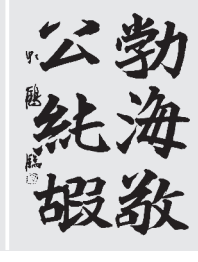 勃海敬
公純嘏